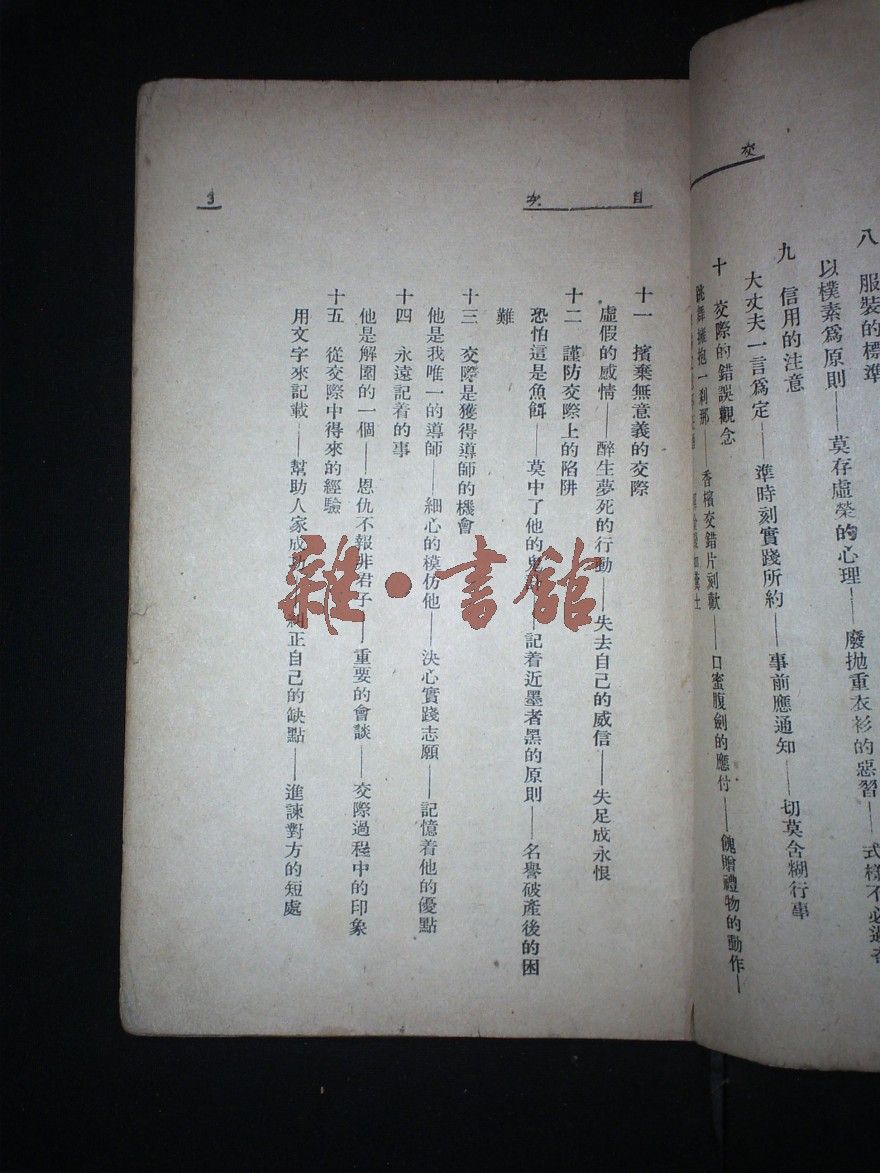 交
八　服裝的標準
以樸素爲原則——莫存虛榮的心理——廢拋重衣衫的惡習——式樣不必過
九　信用的注意
大丈夫一言爲定——準時刻實踐所約——事前應通知——切莫含糊行事
十　交際的錯誤觀念
擁抱一刹那——香檳交錯片刻歡——口蜜腹劍的應付——餽贈禮物的動作—
目次
3
十一　擯棄無意義的交際
虛假的感情——醉生夢死的行動——失去自己的威信——失足成永恨
十二　謹防交際上的陷阱
恐怕這是魚餌——莫中了他的鬼——記着近墨者黑的原則——名譽破產後的困
難
十三　交際是獲得導師的機會
他是我唯一的導師——細心的模仿他——決心實踐志願——記憶着他的優點
十四　永遠記着的事
他是解圍的一個——恩仇不報非君子——重要的會談——交際過程中的印象
十五　從交際中得來的經驗
用文字來記載——幫助人家成——糾正自己的缺點——進諫對方的短處
雜·書館